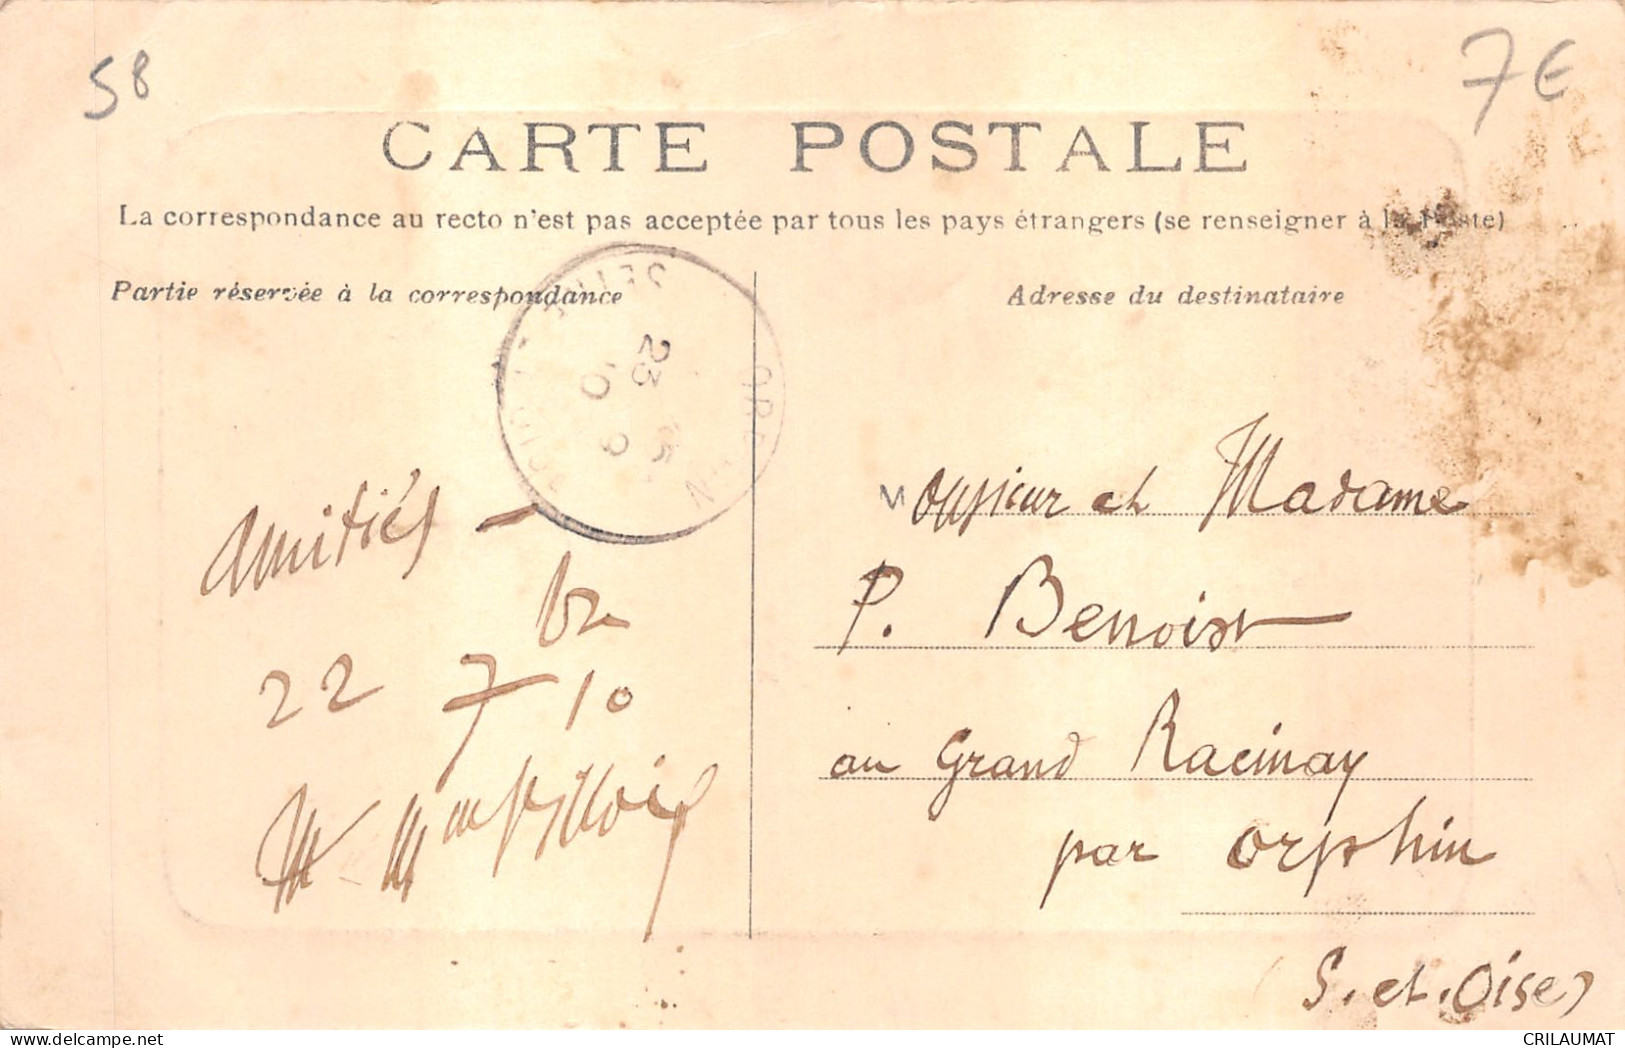 58
7€
CARTE POSTALE
La correspondance au recto n'est pas acceptée par tous les pays étrangers (se renseigner à la Poste)
Partie réservée à la correspondance
Adresse du destinataire
23
Amitiés —
22 7 10
Monsieur et Madame
P. Benoist
au Grand Racinay
par Orphin
(S. et. Oise)
CRILAUMAT